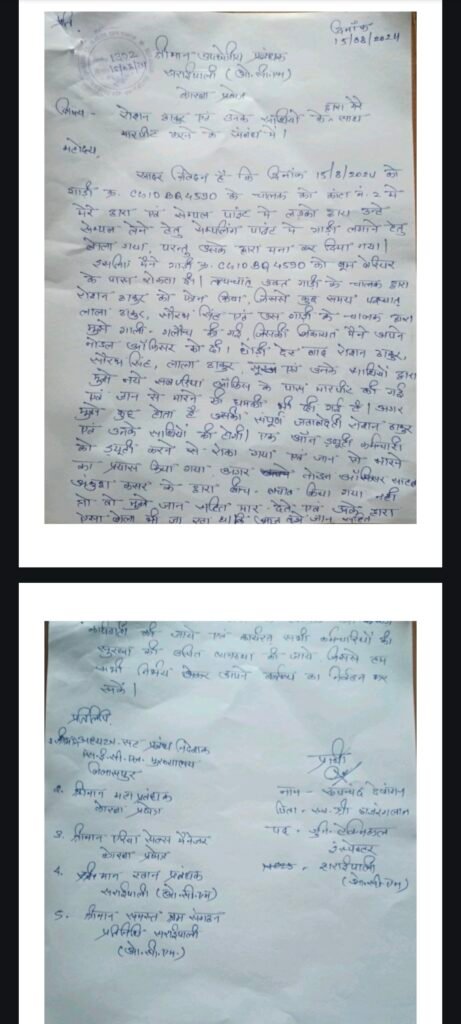 प्रति,
दिनांक
15/08/2024
1392
15/08/24
श्रीमान उपक्षेत्रीय प्रबंधक
सराईपाली (ओ.सी.एम)
कोरबा क्षेत्र
विषय - रोशन ठाकुर एवं उनके साथियों के द्वारा मेरे साथ
मारपीट करने के संबंध में।
महोदय,
सादर निवेदन है कि दिनांक 15/8/2024 को
गाड़ी क्र. CG10BQ4590 के चालक को कांटा नं. 2 में
मेरे द्वारा एवं सेम्पल पाइंट में लड़को द्वारा उन्हे
सेम्पल लेने हेतु सेम्पलिंग पाइंट में गाड़ी लगाने हेतु
बोला गया, परन्तु उसके द्वारा मना कर दिया गया।
इसलिए मैंने गाड़ी क्र. CG10BQ4590 को बूम बेरियर
के पास रोकवा दी। तत्पश्चात् उक्त गाड़ी के चालक द्वारा
रोशन ठाकुर को फोन किया, जिससे कुछ समय पश्चात
लाला ठाकुर, सौरभ सिंह एवं उस गाड़ी के चालक द्वारा
मुझे गाली-गलौच की गई, जिसकी शिकायत मैंने अपने
नोडल ऑफिसर को दी। थोड़ी देर बाद रोशन ठाकुर,
सौरभ सिंह, लाला ठाकुर, एवं उनके साथियों द्वारा
मुझे नये सबएरिया ऑफिस के पास मारपीट की गई
एवं जान से मारने की धमकी भी दी गई है। अगर
मुझे कुछ होता है उसकी संपूर्ण जवाबदारी रोशन ठाकुर
एवं उनके साथियों की होगी। एक ऑन ड्यूटी कर्मचारी
को ड्यूटी करने से रोका गया एवं जान से मारने
का प्रयास किया गया अगर नोडल ऑफिसर साहब
के द्वारा बीच-बचाव किया गया नही
तो वो मुझे जान सहित मार देते एवं उनके द्वारा
बोला भी जा रहा था कि जान सहित
कार्यवाही की जाये एवं कार्यरत सभी कर्मचारियों की
सुरक्षा की उचित व्यवस्था की जाये जिससे हम
सभी निर्भय होकर अपने कर्तव्य का निर्वहन कर
सकें।
प्रतिलिपि,
1. श्रीमान अध्यक्ष सह प्रबंध निदेशक
एस.ई.सी.एल. मुख्यालय
बिलासपुर
2. श्रीमान महा प्रबंधक
कोरबा क्षेत्र
3. श्रीमान एरिया सेल्स मैनेजर
कोरबा क्षेत्र
4. श्रीमान खान प्रबंधक
सराईपाली (ओ.सी.एम)
5. श्रीमान समस्त श्रम संगठन
प्रतिनिधि सराईपाली
(ओ.सी.एम.)
प्रार्थी
नाम - देवांगन
पिता - स्व. श्री
पद - टेक्निकल
इंस्पेक्टर
सराईपाली
(ओ.सी.एम)